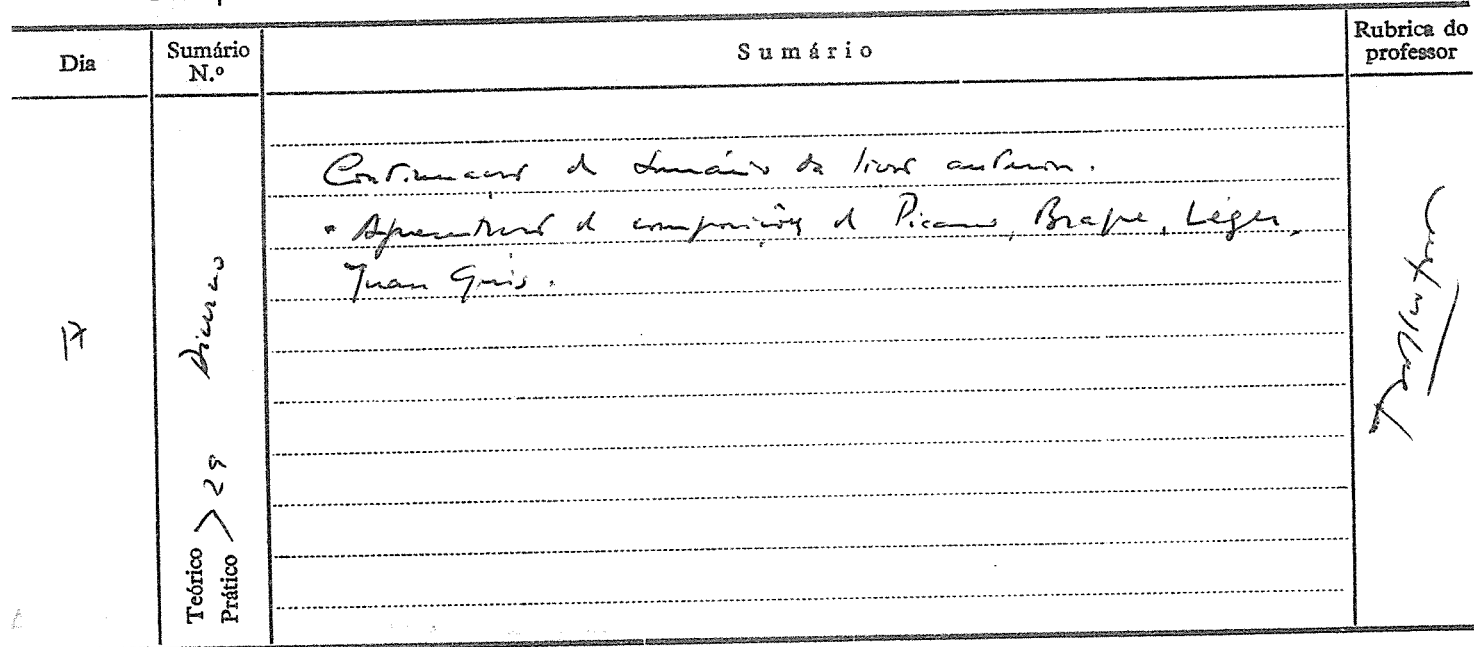 Dia
Sumário N.º
Sumário
Rubrica do professor
17
Diurno
Teórico > 29
Prático
Continuação do sumário da lição anterior.
• Apresentação de composições de Picasso, Braque, Léger,
Juan Gris.